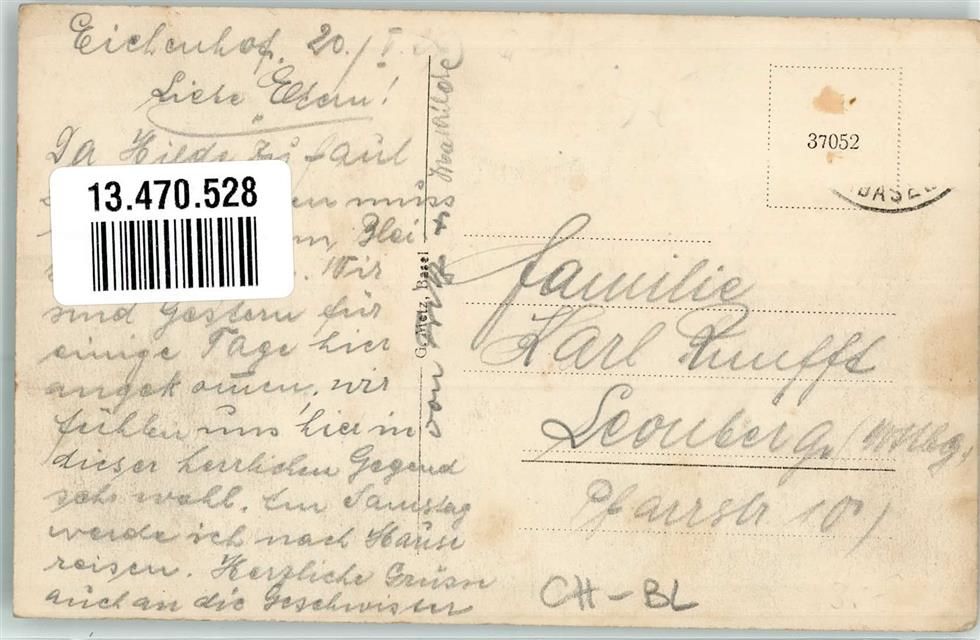 Eichenhof, 20./I.
Liebe Eltern!
Da Hilde zu faul
muss
Blei
. Wir
sind Gestern für
einige Tage hier
angekomen, wir
fühlen uns hier in
dieser herrlichen Gegend
sehr wohl. Am Samstag
werde ich nach Hause
reisen. Herzliche Grüsse
auch an die Geschwister
von + Mathilde
G. Metz, Basel
13.470.528
37052
BASEL
Familie
Karl
Leonberg (Wttbg.
Pfarrstr 10
CH-BL